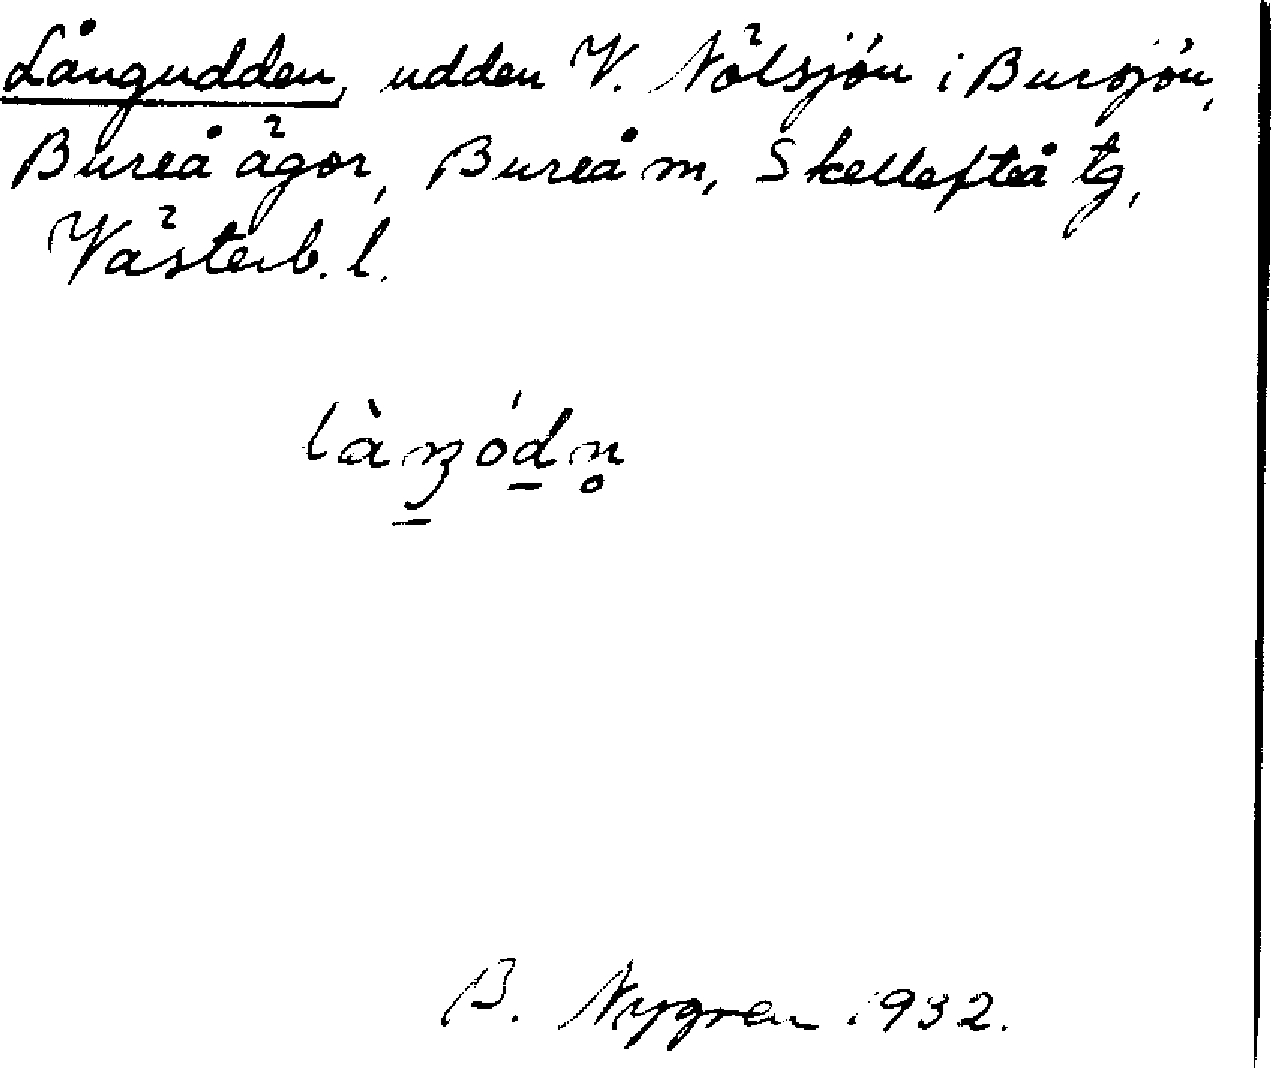 Långudden, udden V. Nölsjön i Bursjön,
Bureå ägor, Bureå m, Skellefteå tg,
Västerb. l.
làŋ̲ód̲n̥
B. Nygren 1932.